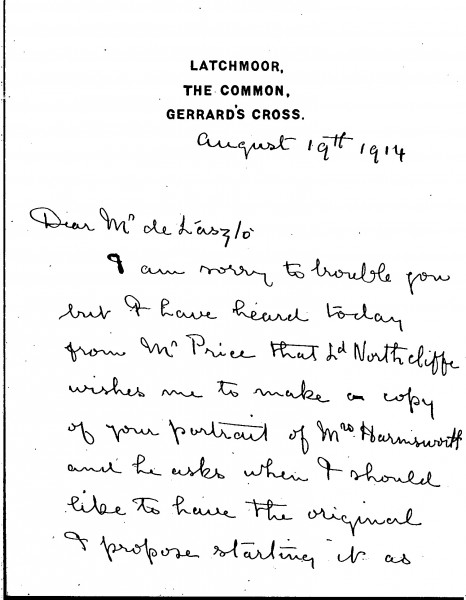 LATCHMOOR,
THE COMMON,
GERRARD'S CROSS.
August 19th 1914
Dear Mr de László
I am sorry to trouble you
but I have heard today
from Mr Price that Ld Northcliffe
wishes me to make a copy
of your portrait of Mrs Harmsworth
and he asks when I should
like to have the original
I propose starting it as